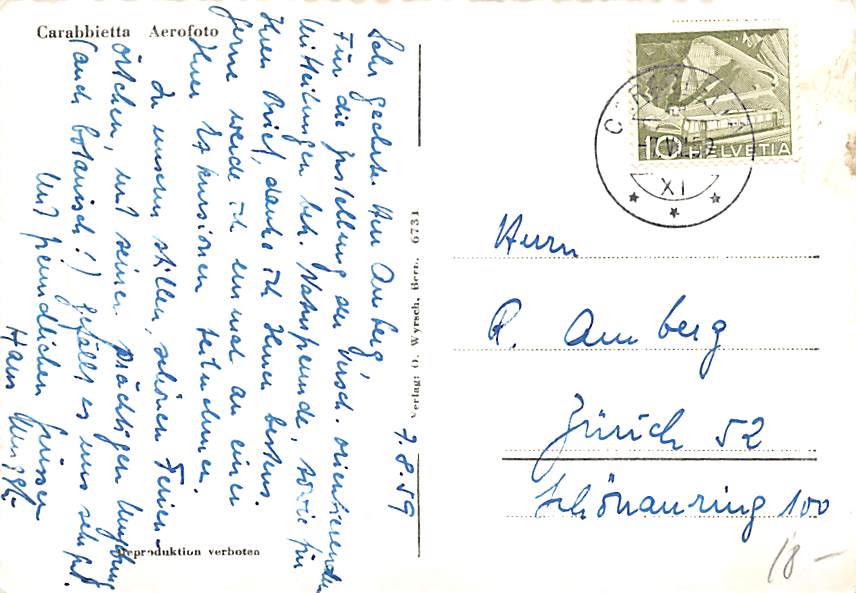 Carabbietta Aerofoto
Sehr geehrter Herr Amberg,
Für die Zustellung der versch. orientierenden
Mitteilungen betr. Naturfreunde, sowie für
Ihren Brief, danke ich Ihnen bestens.
Gerne werde ich einmal an einer
Ihrer Exkursionen teilnehmen.
In unserm stillen, schönen Ferien-
örtchen, mit seiner prächtigen Umgebung
(auch botanisch!) gefällt es uns sehr gut.
Mit freundlichen Grüssen
Hans
7.8.59
Reproduktion verboten
Verlag: O. Wyrsch, Bern. 6731
10 HELVETIA
XI
Herrn
R. Amberg
Zürich 52
Schönauring 100
18 –